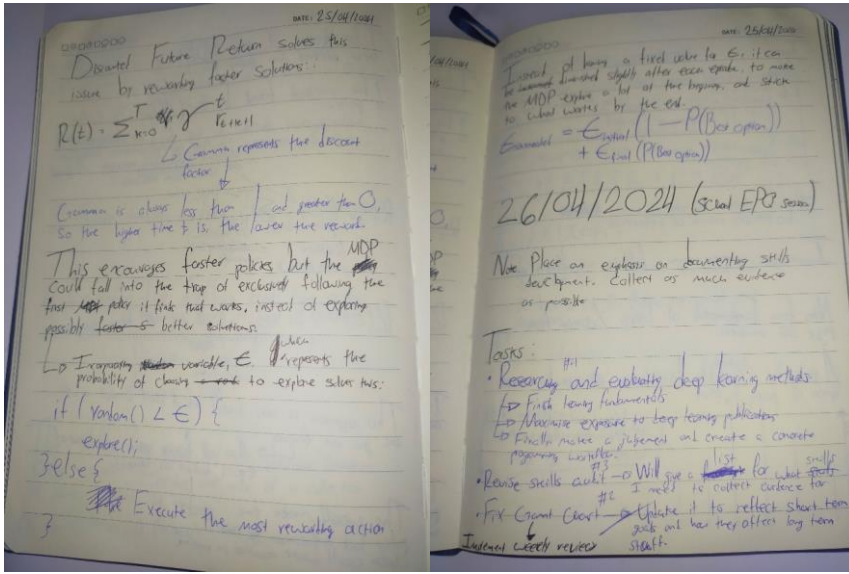 DATE: 25/04/2024
Discounted Future Return solves this
issue by rewarding faster solutions:
R(t) = Σ γ^t r_t+k+1
T
k=0
↳ Gamma represents the discount
factor
↓
Gamma is always less than 1 and greater than 0,
so the higher time t is, the lower the reward.
This encourages faster policies but the MDP
could fall into the trap of exclusively following the
first policy it finds that works, instead of exploring
possibly better solutions.
↳ Incorporating variable, ϵ which represents the
probability of choosing to explore solves this:
if (random() < ϵ) {
explore();
} else {
Execute the most rewarding action
}
DATE: 25/04/2024
Instead of having a fixed value for ϵ, it can
be diminished slightly after each episode, to make
the MDP explore a lot at the beginning, and stick
to what works by the end.
= ϵ initial (1 - P(Best option))
+ ϵ final (P(Best option))
26/04/2024 (School EPQ session)
Note Place an emphasis on documenting skills
development. Collect as much evidence
as possible
Tasks:
• Researching #1 and evaluating deep learning methods
↳ Finish learning fundamentals
↳ Maximise exposure to deep learning publications
↳ Finally make a judgement and create a concrete
programming
• Revise skills audit #3 → Will give a list for what skills
I need to collect evidence for
• Fix Gantt Chart #2 → Update it to reflect short term
goals and how they affect long term
stuff.
Implement weekly reviews